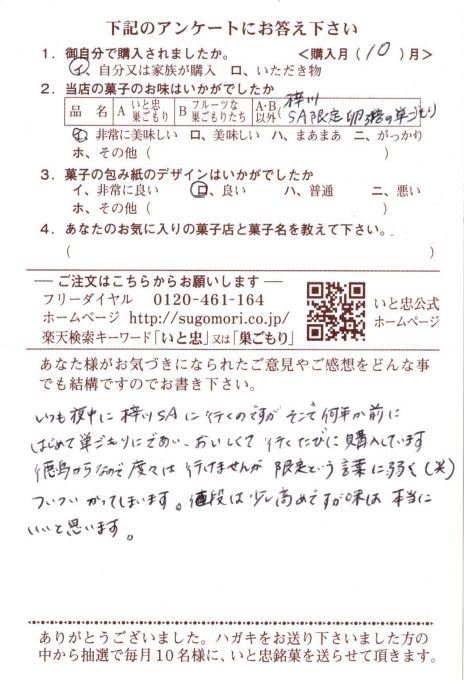 下記のアンケートにお答え下さい
1. 御自分で購入されましたか。 ＜購入月(10)月＞
イ、自分又は家族が購入 ロ、いただき物
2. 当店の菓子のお味はいかがでしたか
品名 A いと忠巣ごもり B フルーツな巣ごもりたち A・B以外 (梓川SA限定 の巣ごもり
イ、非常に美味しい ロ、美味しい ハ、まあまあ ニ、がっかり
ホ、その他( )
3. 菓子の包み紙のデザインはいかがでしたか
イ、非常に良い ロ、良い ハ、普通 ニ、悪い
ホ、その他( )
4. あなたのお気に入りの菓子店と菓子名を教えて下さい。
( )
ご注文はこちらからお願いします
フリーダイヤル 0120-461-164
ホームページ http://sugomori.co.jp/
楽天検索キーワード「いと忠」又は「巣ごもり」
いと忠公式
ホームページ
あなた様がお気づきになられたご意見やご感想をどんな事
でも結構ですのでお書き下さい。
いつも夜中に梓川SAに行くのですが そこで何年か前に
はじめて巣ごもりにであい、おいしくて 行くたびに購入しています
徳島からなので度々は 行けませんが 限定という言葉に弱く(笑)
ついつい かってしまいます。値段は少し高めですが味は 本当に
いいと思います。
ありがとうございました。ハガキをお送り下さいました方の
中から抽選で毎月10名様に、いと忠銘菓を送らせて頂きます。